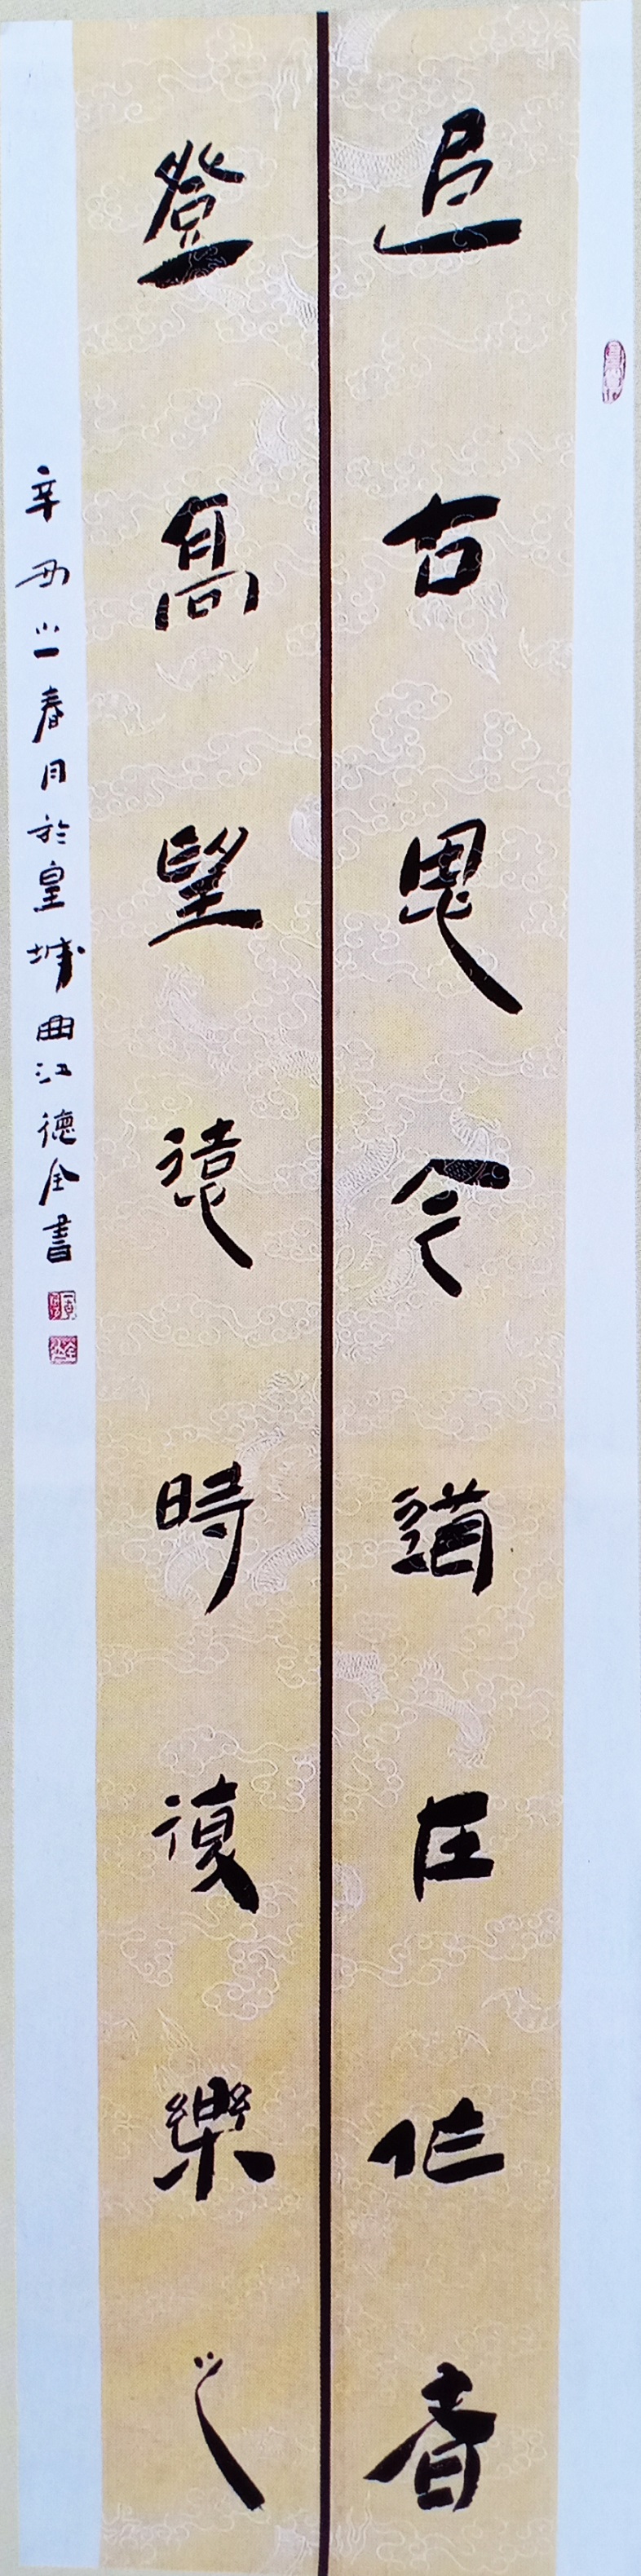 追古思今猶在作者
登高望遠時復樂之
辛丑小春月於皇城曲江德全書